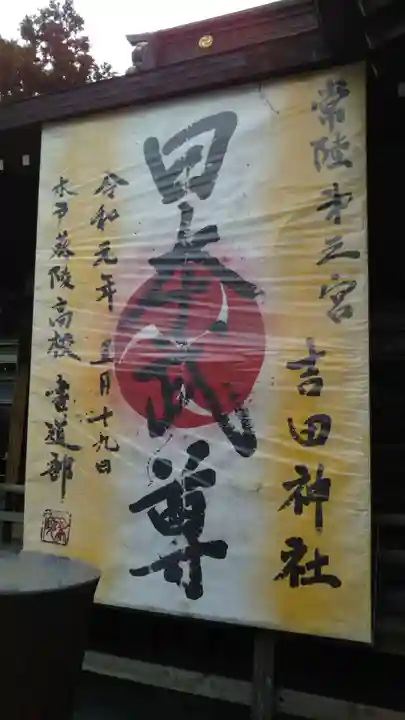 常陸第三宮 吉田神社
日本武尊
令和元年 五月十九日
水戸葵陵高校 書道部